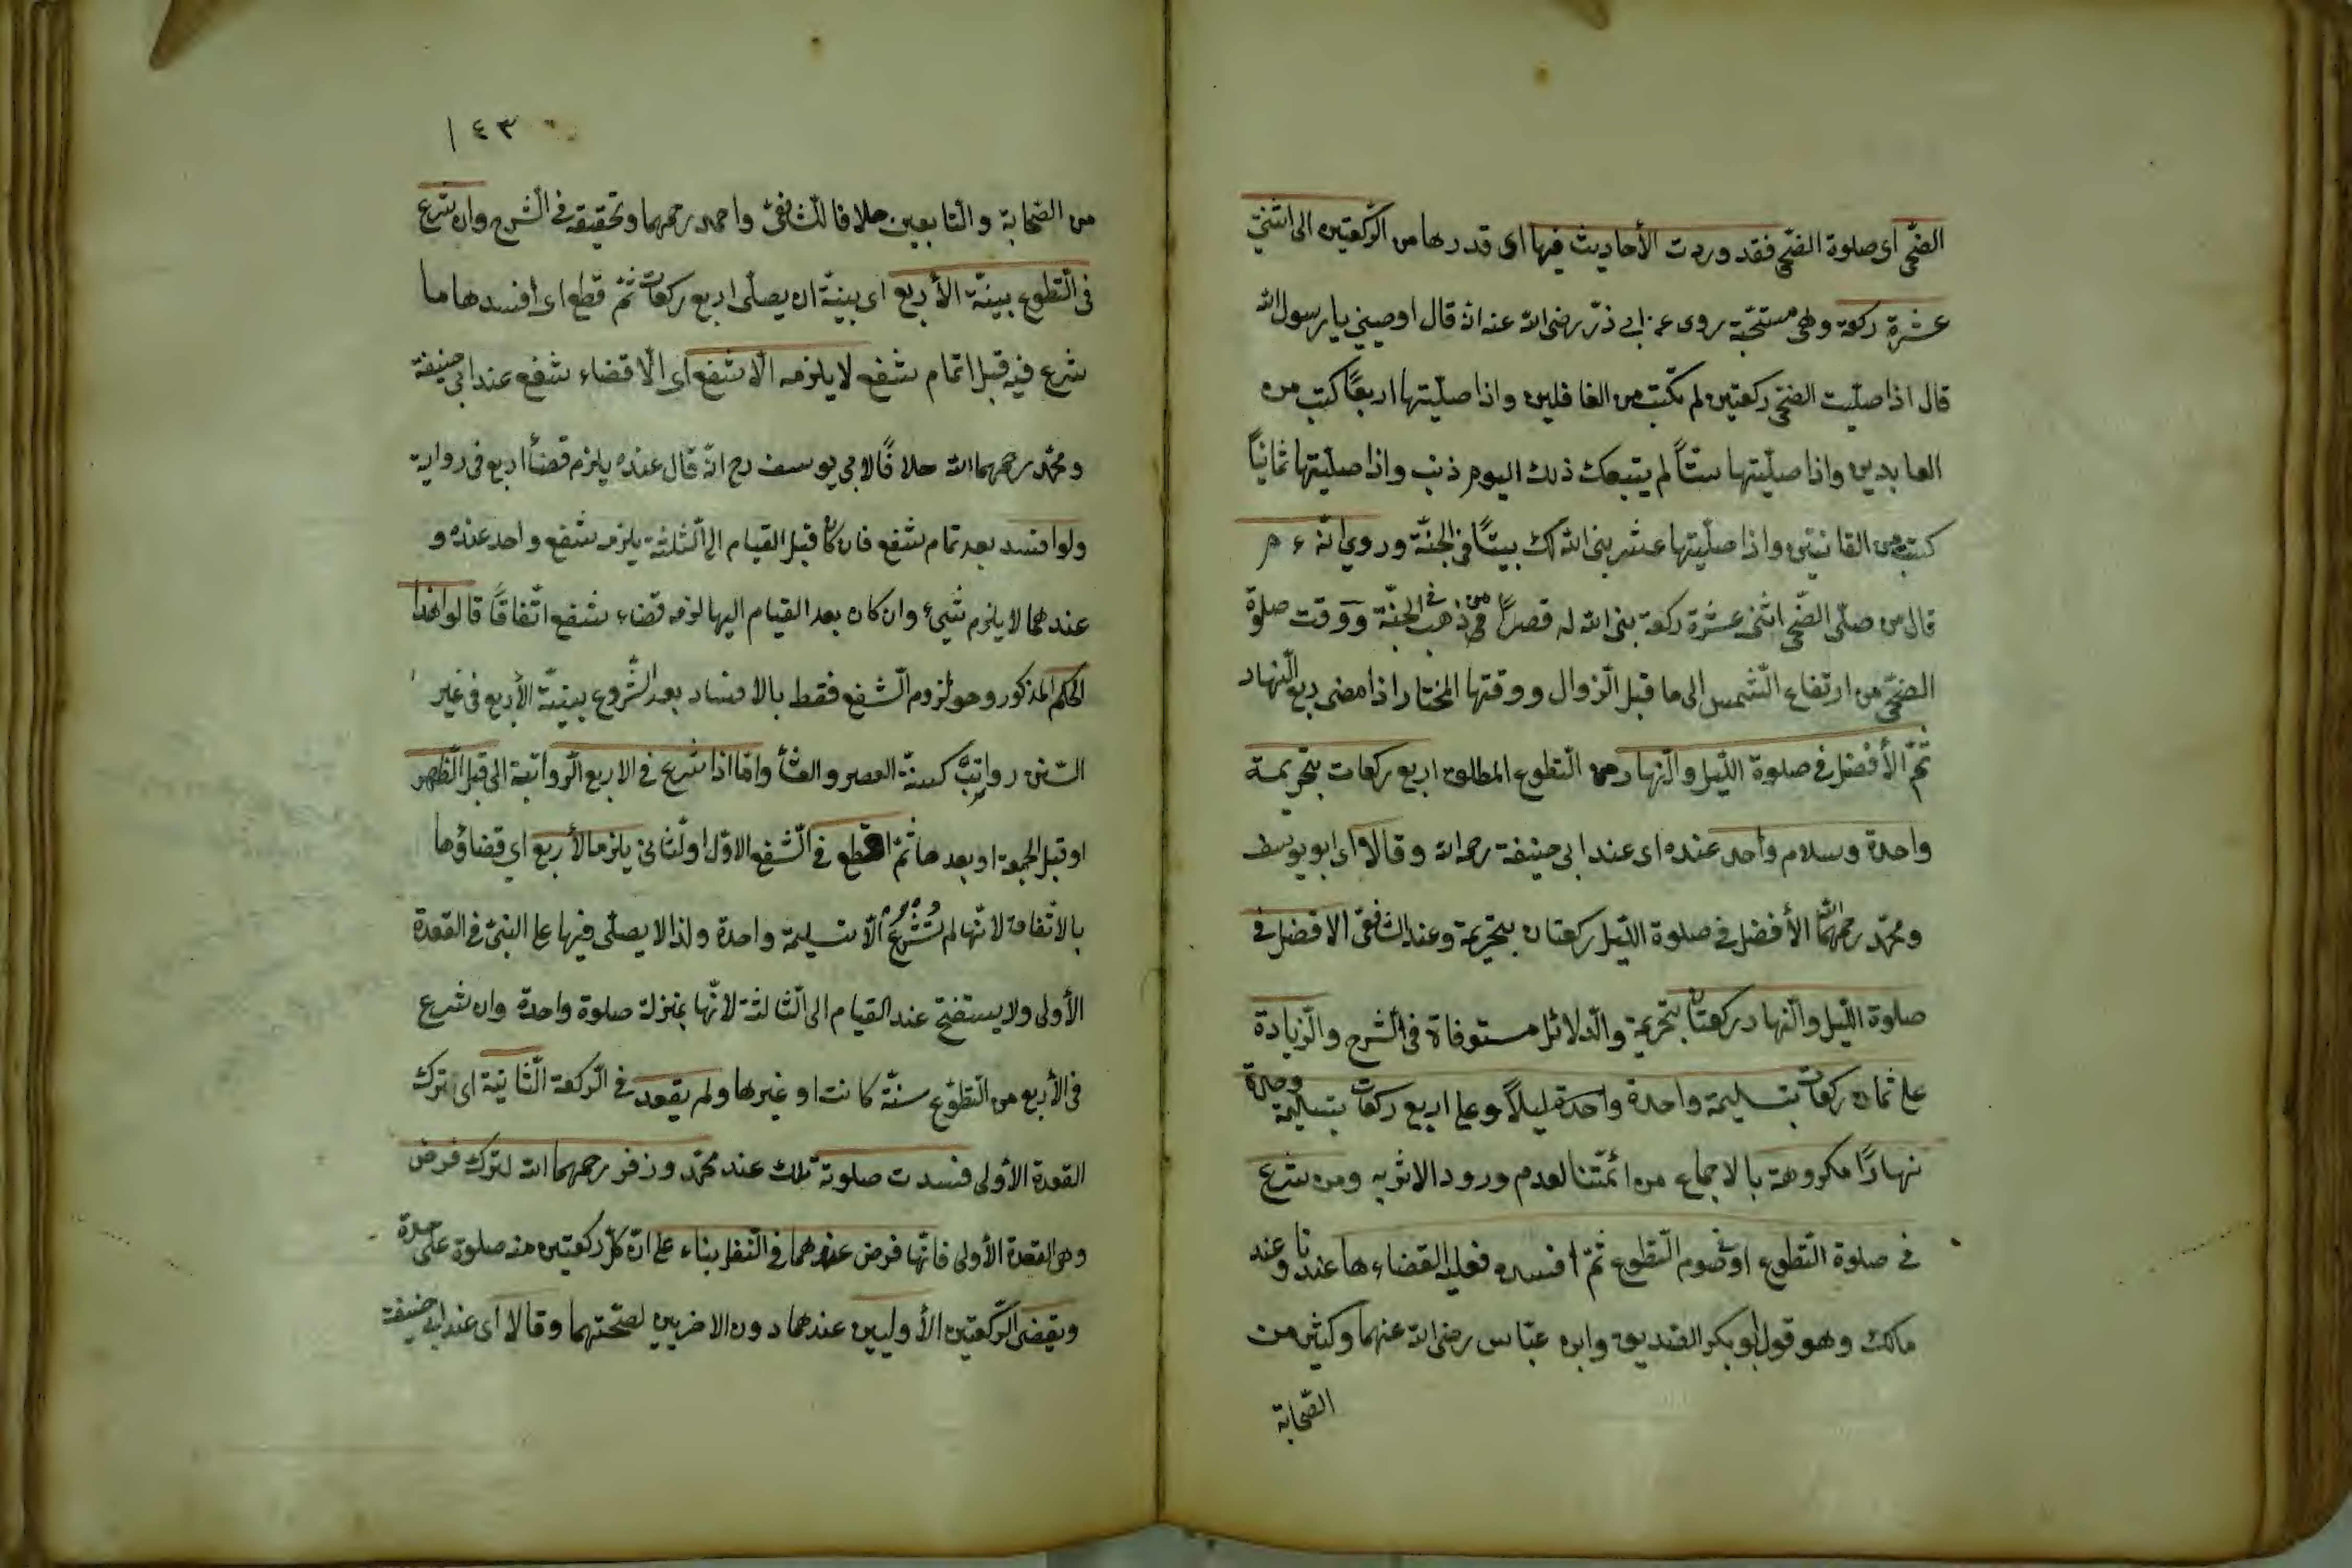 الضّحى اى صلوة الضّحى فقد وردت الأحاديث فيها اى قدرها من الرّكعتين الى اثنتى
عشرة ركعة وهى مستحبّة روى عن ابى ذرّ رضى الله عنه انه قال اوصينى يا رسول الله
قال اذا صلّيت الضحى ركعتين لم تكتب من الغافلين واذا صلّيتها اربعًا كتب من
العابدين واذا صلّيتها ستّاً لم يتبعك ذلك اليوم ذنب واذا صلّيتها ثمانيًا
كتبت من القانتين واذا صلّيتها عشر بنى الله لك بيتًا فى الجنّة وروى انّه ء م
قال من صلّى الضّحى اثنى عشرة ركعة بنى الله له قصرًا من ذهب فى الجنّة ووقت صلوة
الضحى من ارتفاع الشّمس الى ما قبل الزوال ووقتها المختار اذا مضى ربع النّهار
ثمّ الأفضل فى صلوة اللّيل والنّهار من التّطوع المطلق اربع ركعات بتحريمة
واحدة وسلام واحد عنده اى عند ابى حنيفة رحمه الله وقالا اى ابو يوسف
ومحمّد رحمهما الله الأفضل فى صلوة اللّيل ركعتان بتحريمة وعند الشافعى الافضل فى
صلوة اللّيل والنّهار ركعتان بتحريمة والدّلائل مستوفاة فى الشّرح والزّيادة
على ثمان ركعات بتسليمة واحدة واحدة ليلاً وعلى اربع ركعات بتسليمة واحدة
نهارًا مكروهة بالاجماع من ائمّتنا لعدم ورود الاثر به ومن شرع
فى صلوة التّطوع او فى صوم التّطوع ثمّ افسده فعليه القضاء لها عندنا وعند
مالك وهو قول ابو بكر الصّديق وابن عبّاس رضى الله عنهما وكثير من
الصّحابة
١٤٣
من الصّحابة والتّابعين خلافا للشافعى واحمد رحمهما وتحقيقه فى الشّرح وان شرع
فى التّطوع بنيّة الأربع اى بنيّة ان يصلّى اربع ركعات ثمّ قطع اى أفسدها ما
شرع فيه قبل اتمام شفع لا يلزمه الّا شفع اى الّا قضاء شفع عند ابى حنيفة
ومحمّد رحمهما الله خلافًا لابى يوسف رح انّه قال عنده يلزم قضأ اربع فى رواية
ولو افسد بعد تمام شفع فان كان قبل القيام الى الثّلثة يلزمه شفع واحد عنده و
عندهما لا يلزم شيئ وان كان بعد القيام اليها لزمه قضاء شفع اتّفاقًا قالوا هذا
الحكم المذكور وهو لزوم الشّفع فقط بالافساد بعد الشّروع بنيّة الأربع فى غير
السّنن رواتبٌ كسنّة العصر والعشأ وامّا اذا شرع فى الاربع الرّواتبة الى قبل الظّهر
او قبل الجمعة او بعدها ثمّ قطع فى الشّفع الاوّل او الثانى يلزمه الأربع اى قضاؤها
بالاتّفاق لانّها لم تُشْرَعْ الّا بتسليمة واحدة ولذا لا يصلّى فيها على النبىّ فى القعدة
الأولى ولا يستفتح عند القيام الى الثّالثة لانّها بمنزلة صلوة واحدة وان شرع
فى الأربع من التّطوّع سنّة كانت او غيرها ولم يقعد فى الرّكعة الثّانية اى ترك
القعدة الأولى فسدت صلوته تلك عند محمّد وزفر رحمهما الله لترك فرض
وهى القعدة الأولى فانّها فرض عندهما فى النّفل بناء على انّ كلّ ركعتين منه صلوة على حدة
ويقضى الرّكعتين الأوليين عندهما دون الاخريين لصحّتهما وقالا اى عند ابى حنيفة